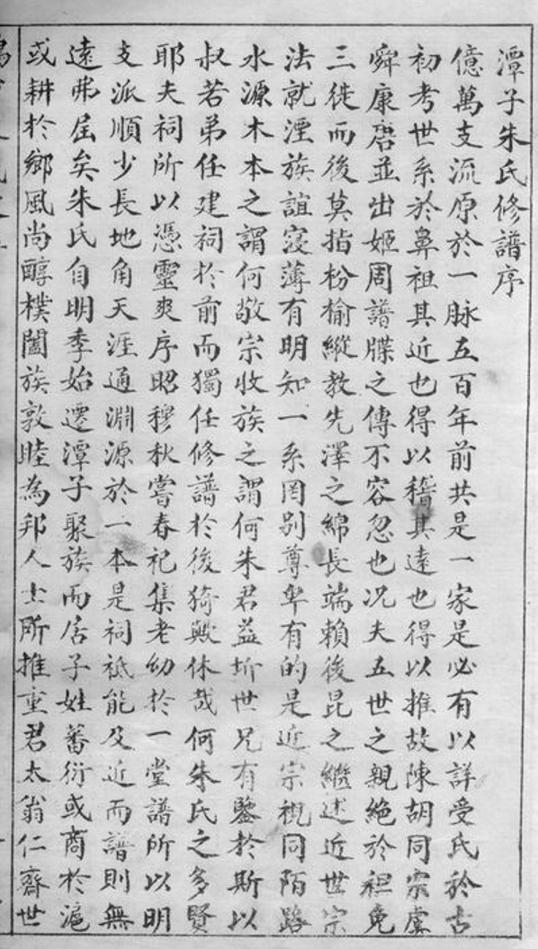 潭子朱氏修譜序
億萬支流原於一脉五百年前共是一家是必有以詳受氏於古
初考世系於鼻祖其近也得以稽其遠也得以推故陳胡同宗虞
舜康唐並出姬周譜牒之傳不容忽也况夫五世之親絶於袒免
三徙而後莫指枌榆縱教先澤之綿長端賴後昆之繼述近世宗
法就湮族誼寖薄有明知一系罔别尊卑有的是近宗視同陌路
水源木本之謂何敬宗收族之謂何朱君益圻世兄有鑒於斯以
叔若弟任建祠於前而獨任修譜於後猗歟休哉何朱氏之多賢
耶夫祠所以憑靈爽序昭穆秋嘗春祀集老幼於一堂譜所以明
支派順少長地角天涯通淵源於一本是祠祗能及近而譜則無
遠弗屆矣朱氏自明季始遷潭子聚族而居子姓蕃衍或商於滬
或耕於鄉風尚醇樸闔族敦睦為邦人士所推重君太翁仁齋世